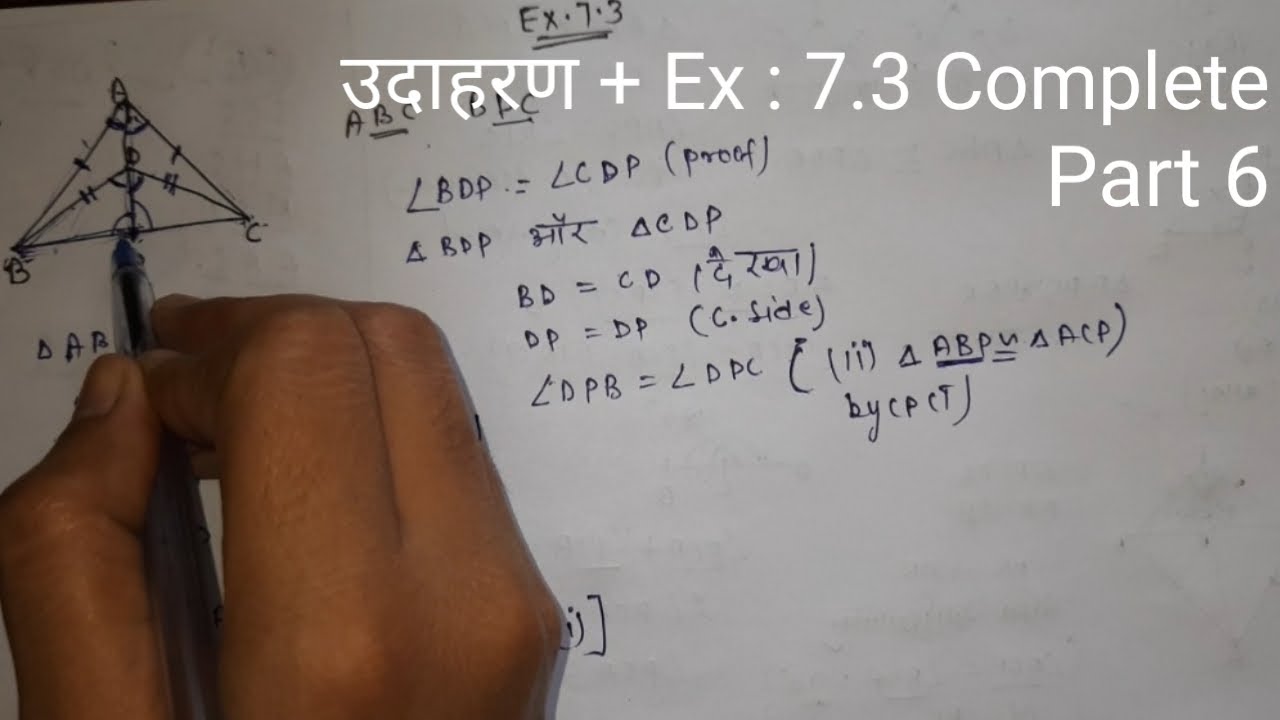 Ex.7.3
उदाहरण + Ex : 7.3 Complete
Part 6
A
D
B
C
ABC BDC
∠BDP = ∠CDP (proof)
Δ BDP और Δ CDP
BD = CD (दे रखा)
DP = DP (C. side)
∠DPB = ∠DPC [(ii) Δ ABP ≅ Δ ACP)
by CPCT)
Δ AB
i)]